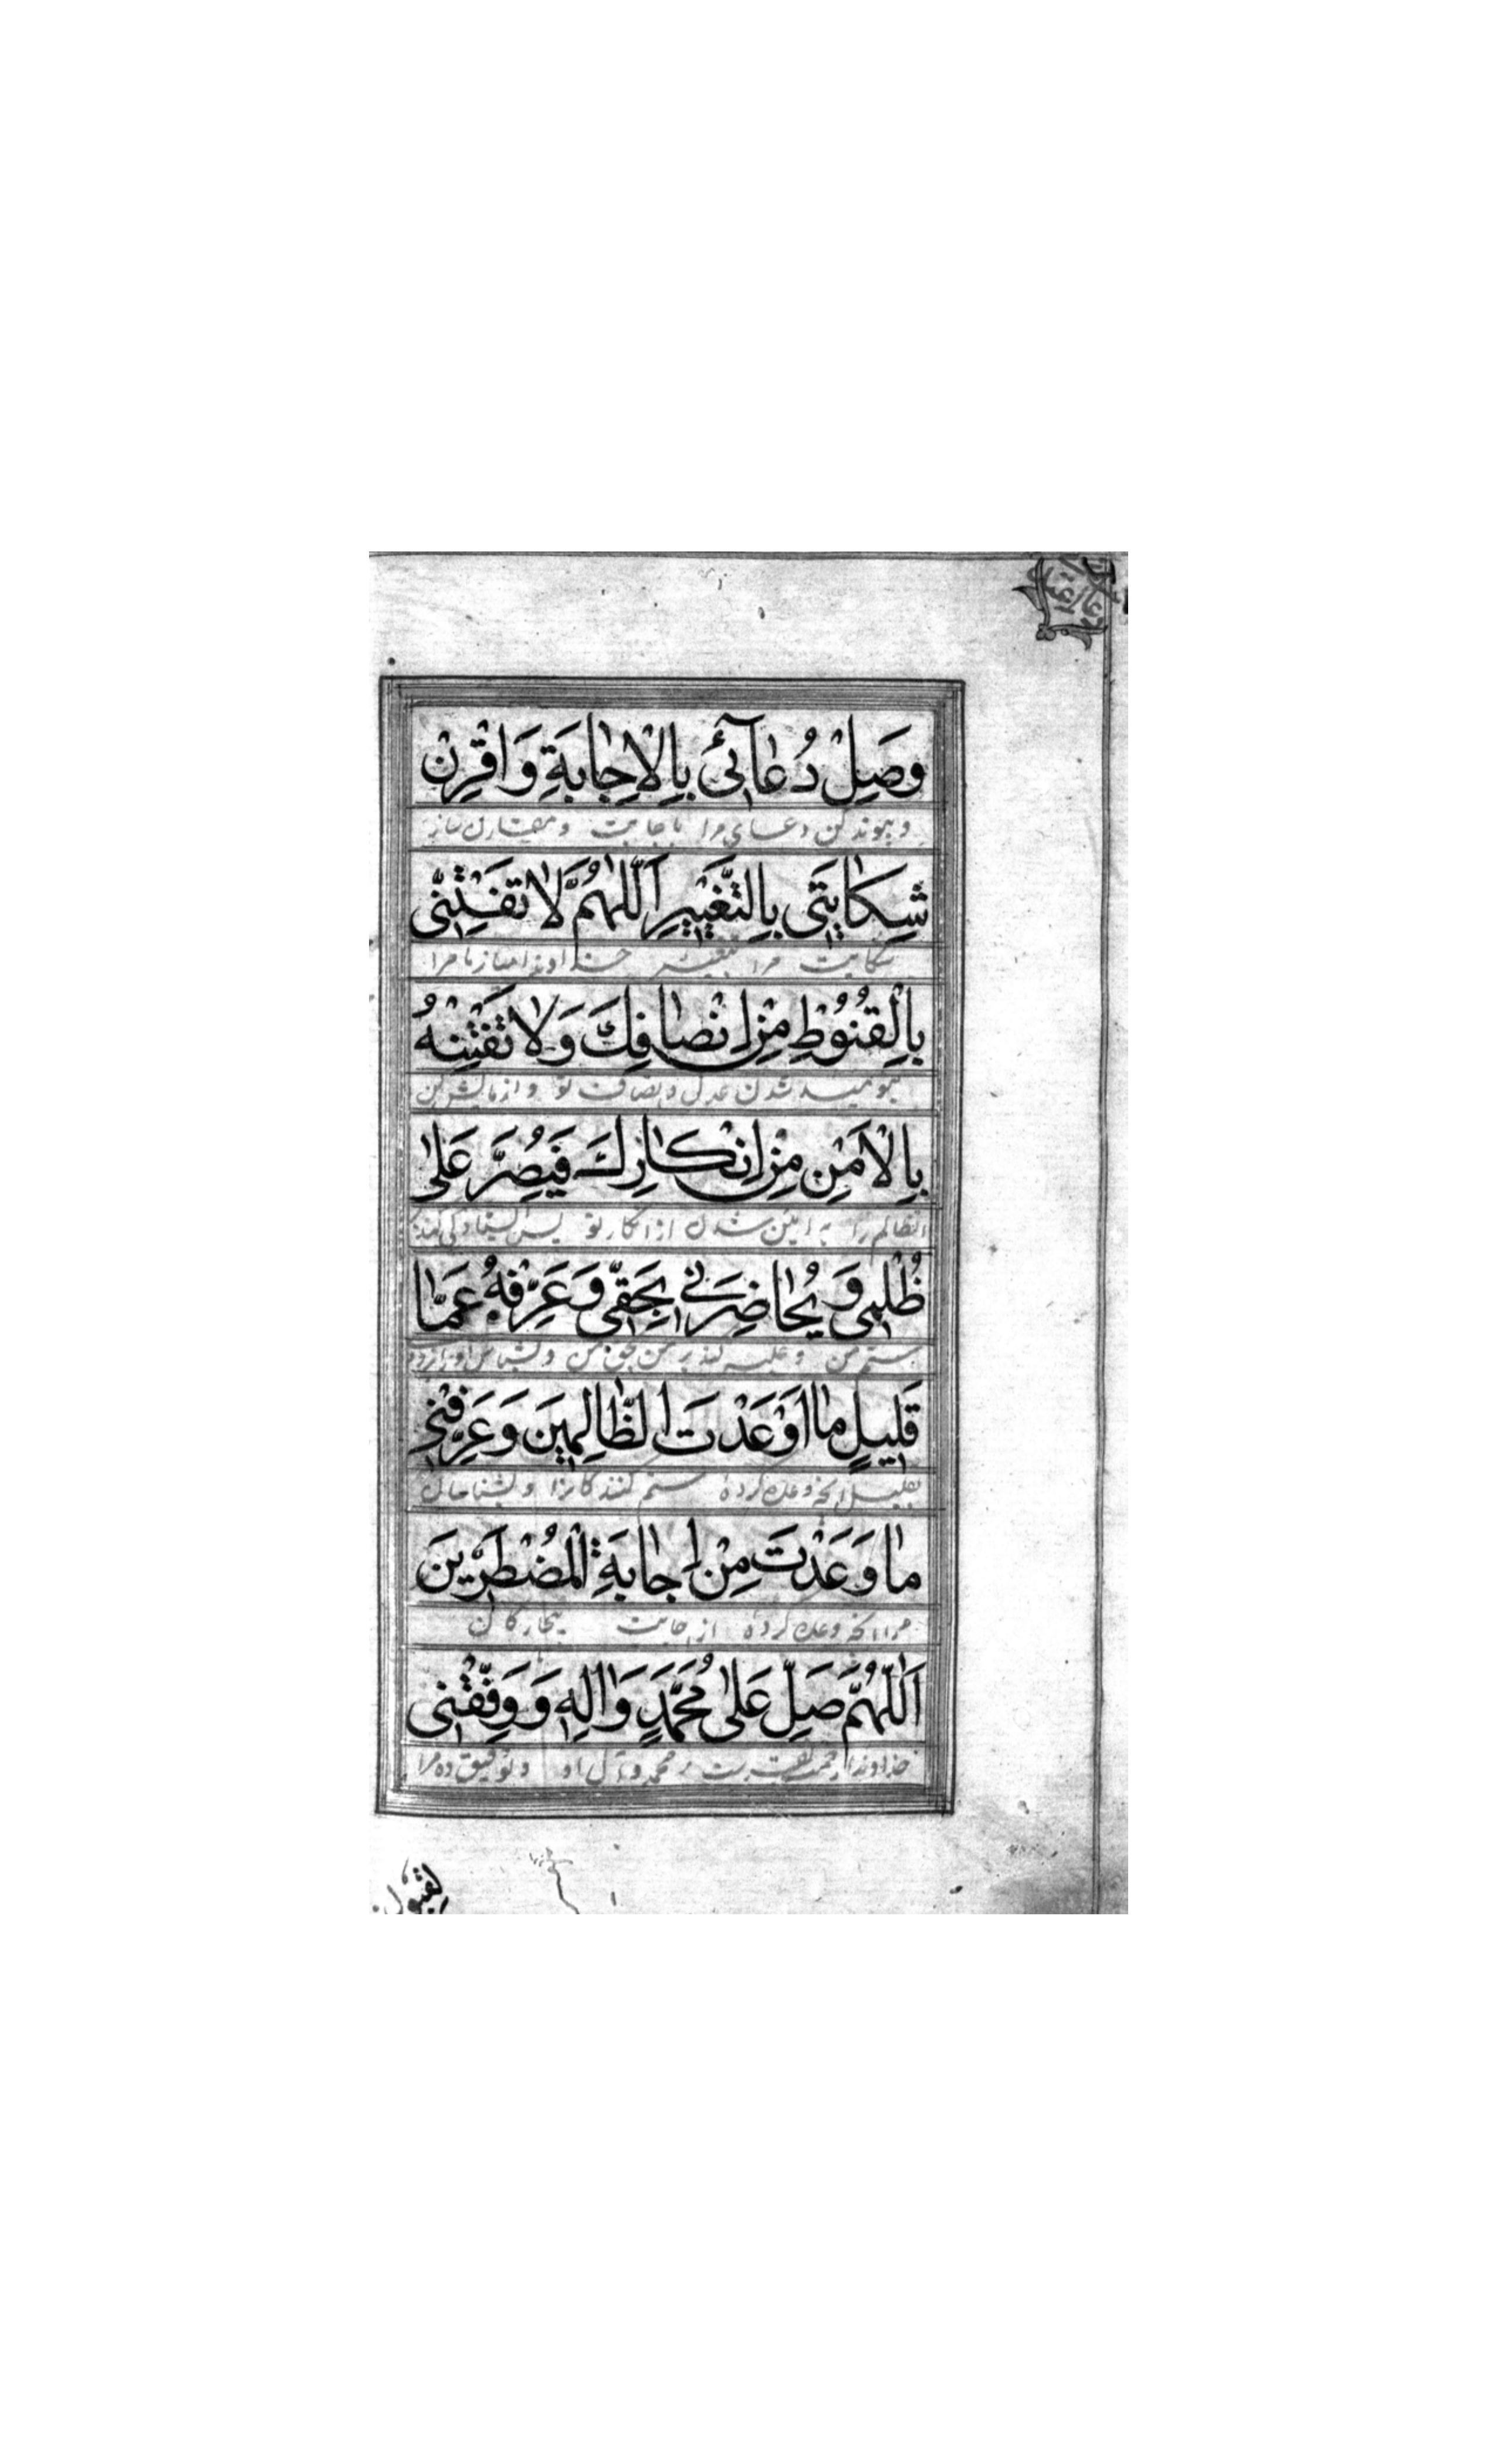 وَصِلْ دُعٰآئیٖ بِالْاِجٰابَةِ وَاقْرِنْ
و پیوند کن دعای مرا باجابت و مقارن ساز
شِکٰایَتیٖ بِالتَّغْییٖرِ اَللّٰهُمَّ لٰا تَفْتِنّیٖ
شکایت مرا بتغییر خداوندا میازما مرا
بِالْقُنُوْطِ مِنْ اِنْصٰافِکَ وَلٰا تَفْتِنْهُ
بنومید شدن عدل و انصاف تو و آزمایش کن
بِالْاَمْنِ مِنْ اِنْکٰارِكَ فَیُصِرَّ عَلیٰ
الظالم را به ایمن شدن از انکار تو پس
ظُلْمیٖ وَ یُحٰاضِرَنیٖ بِحَقّیٖ وَعَرِّفْهُ عَمّٰا
ستم من و غلبه کند بر من بحق من و بشناس او را زود
قَلیٖلٍ مٰا اَوْعَدْتَ الظّٰالِمیٖنَ وَعَرِّفْنیٖ
بقلیل آنچه وعده کردهٔ ستم کنندگانرا و بشناسان
مٰا وَعَدْتَ مِنْ اِجٰابَةِ الْمُضْطَرّیٖنَ
مرا آنچه وعده کردهٔ از اجابت بیچارگان
اَللّٰهُمَّ صَلِّ عَلیٰ مُحَمَّدٍ وَاٰلِهٖ وَ وَفِّقْنیٖ
خداوندا رحمت بفرست بر محمد و آل او و توفیق ده مرا
لقبول